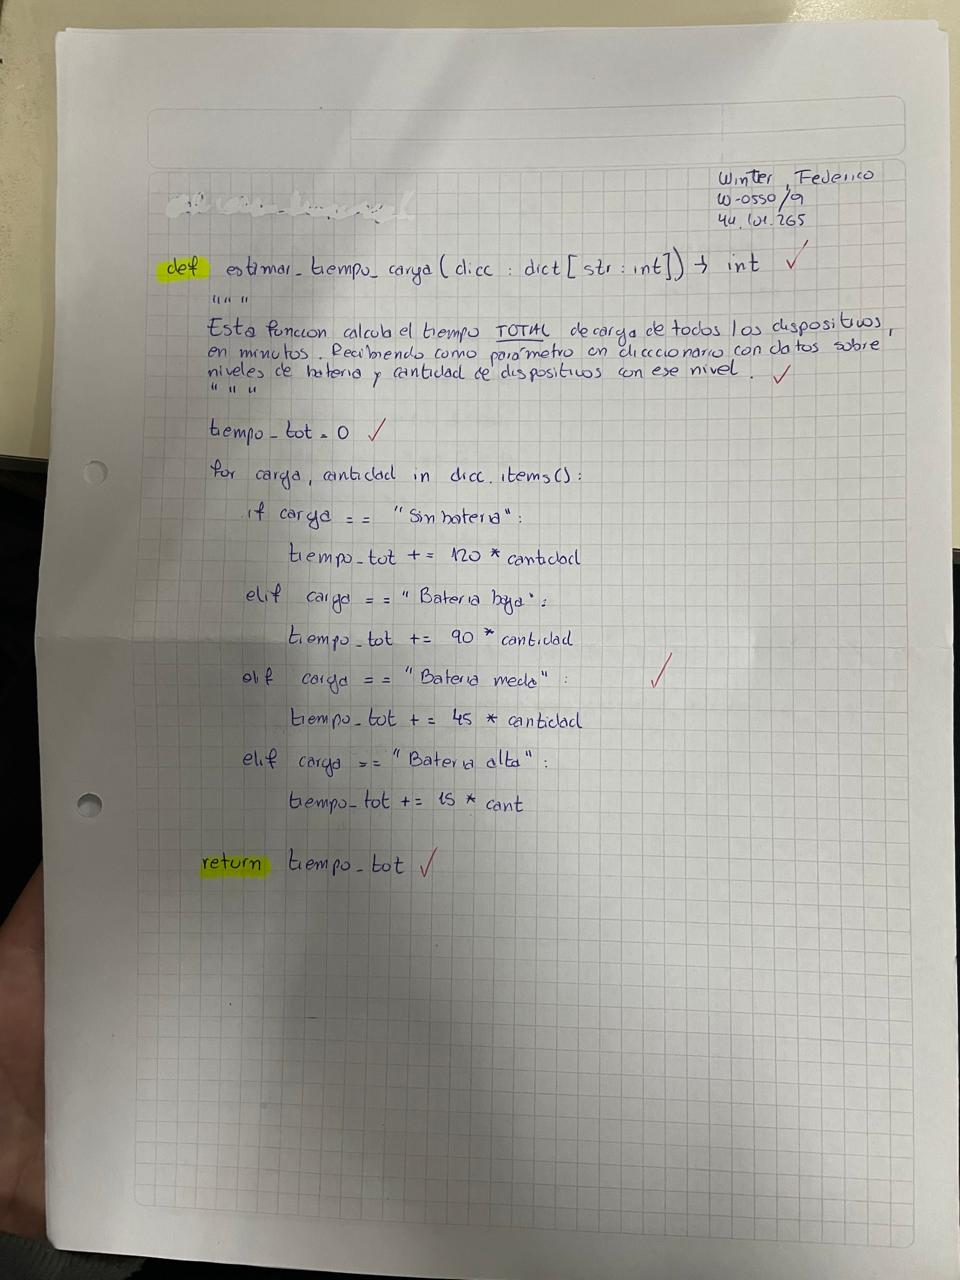 Winter, Federico
W-0550/9
44.101.265
def estimar_tiempo_carga (dicc : dict [str : int]) → int ✓
" " "
Esta funcion calcula el tiempo TOTAL de carga de todos los dispositivos,
en minutos. Recibiendo como parámetro un diccionario con datos sobre
niveles de bateria y cantidad de dispositivos con ese nivel. ✓
" " "
tiempo_tot = 0 ✓
for carga, cantidad in dicc.items():
if carga == "Sin bateria":
tiempo_tot += 120 * cantidad
elif carga == "Bateria baja":
tiempo_tot += 90 * cantidad
elif carga == "Bateria media": ✓
tiempo_tot += 45 * cantidad
elif carga == "Bateria alta":
tiempo_tot += 15 * cant
return tiempo_tot ✓